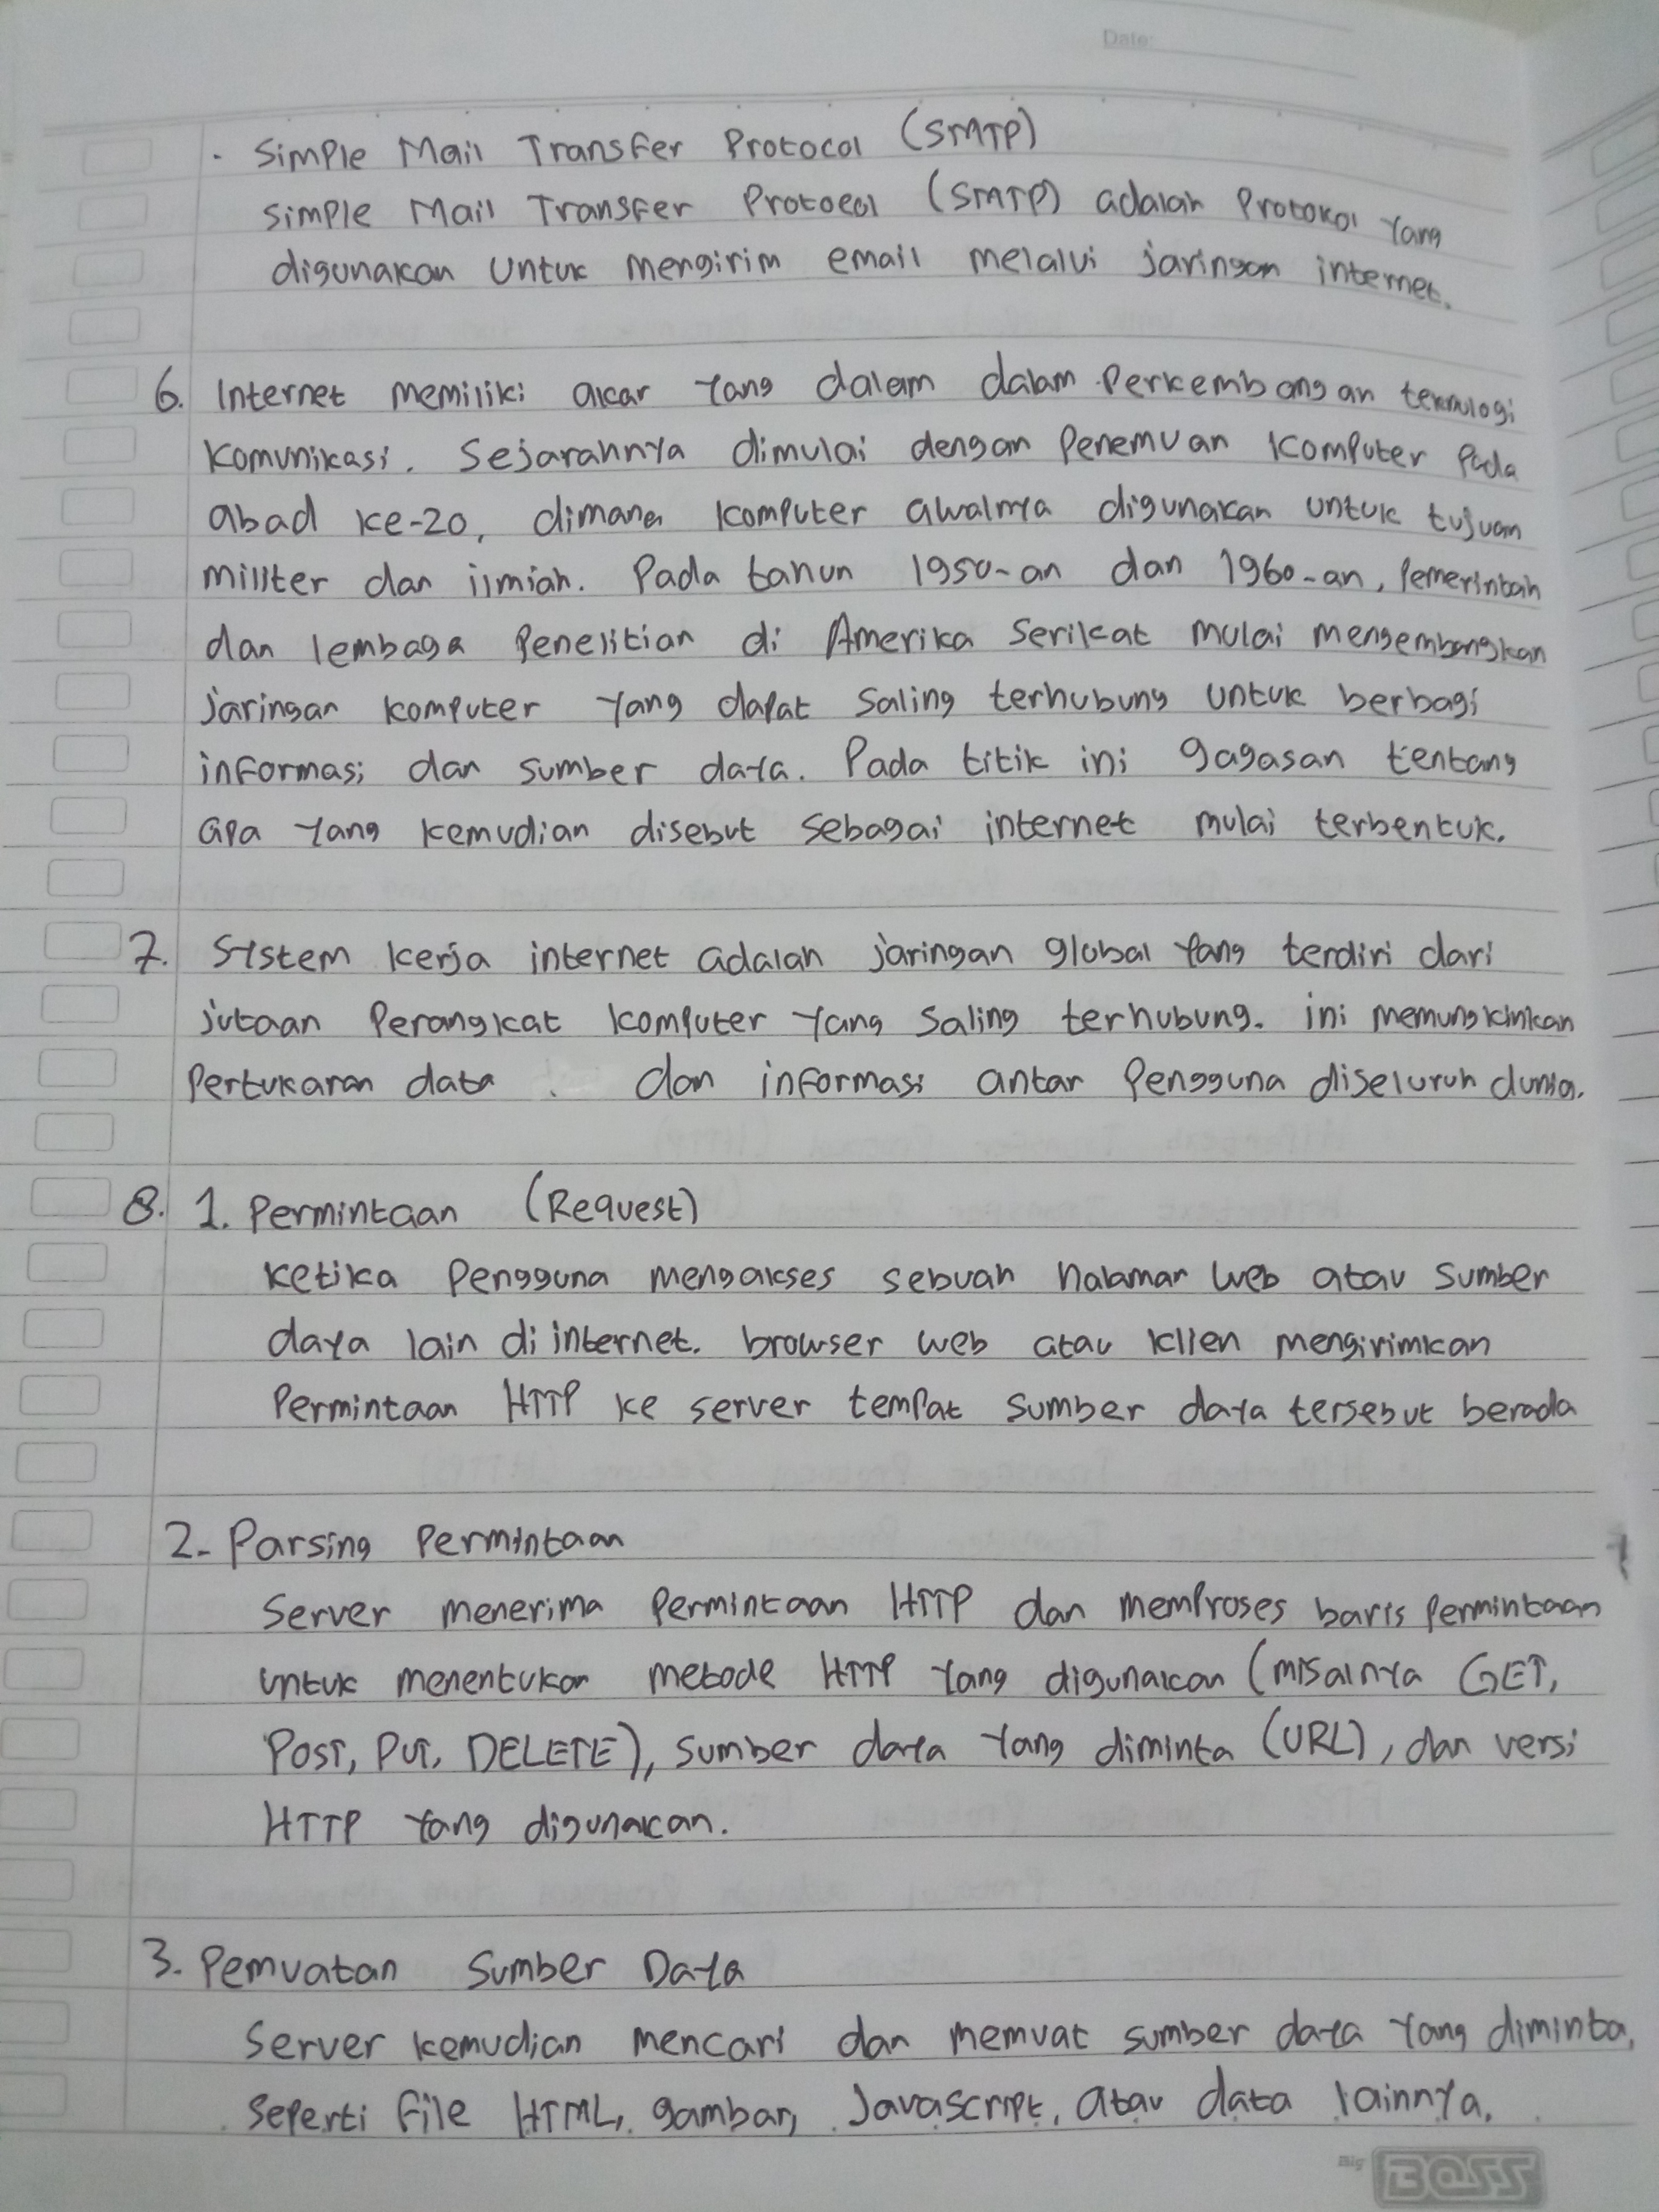 Date:
· Simple Mail Transfer Protocol (SMTP)
Simple Mail Transfer Protocol (SMTP) adalah Protokol Yang
digunakan Untuk mengirim email melalui jaringan internet.
6. Internet memiliki akar Yang dalam dalam Perkembangan teknologi
Komunikasi. Sejarahnya dimulai dengan Penemuan Komputer Pada
abad ke-20, dimana komputer awalnya digunakan untuk tujuan
militer dan ilmiah. Pada tahun 1950-an dan 1960-an, Pemerintah
dan lembaga Penelitian di Amerika Serikat mulai mengembangkan
Jaringan komputer Yang dapat Saling terhubung untuk berbagi
informasi dan sumber daya. Pada titik ini gagasan tentang
apa Yang kemudian disebut sebagai internet mulai terbentuk.
7. Sistem kerja internet adalah jaringan global Yang terdiri dari
jutaan Perangkat komputer Yang Saling terhubung. ini memungkinkan
Pertukaran data . dan informasi antar Pengguna diseluruh dunia.
8. 1. Permintaan (Request)
Ketika Pengguna mengakses sebuah halaman web atau sumber
daya lain di internet. browser web atau klien mengirimkan
Permintaan HTTP ke server tempat sumber daya tersebut berada
2- Parsing Permintaan
Server menerima Permintaan HTTP dan memproses baris Permintaan
untuk menentukan metode HTTP Yang digunakan (misalnya GET,
POST, PUT, DELETE), sumber daya Yang diminta (URL), dan versi
HTTP Yang digunakan.
3. Pemuatan Sumber Daya
Server kemudian mencari dan memuat sumber daya Yang diminta,
Seperti File HTML, gambar, Javascript, atau data lainnya.
Big BOSS